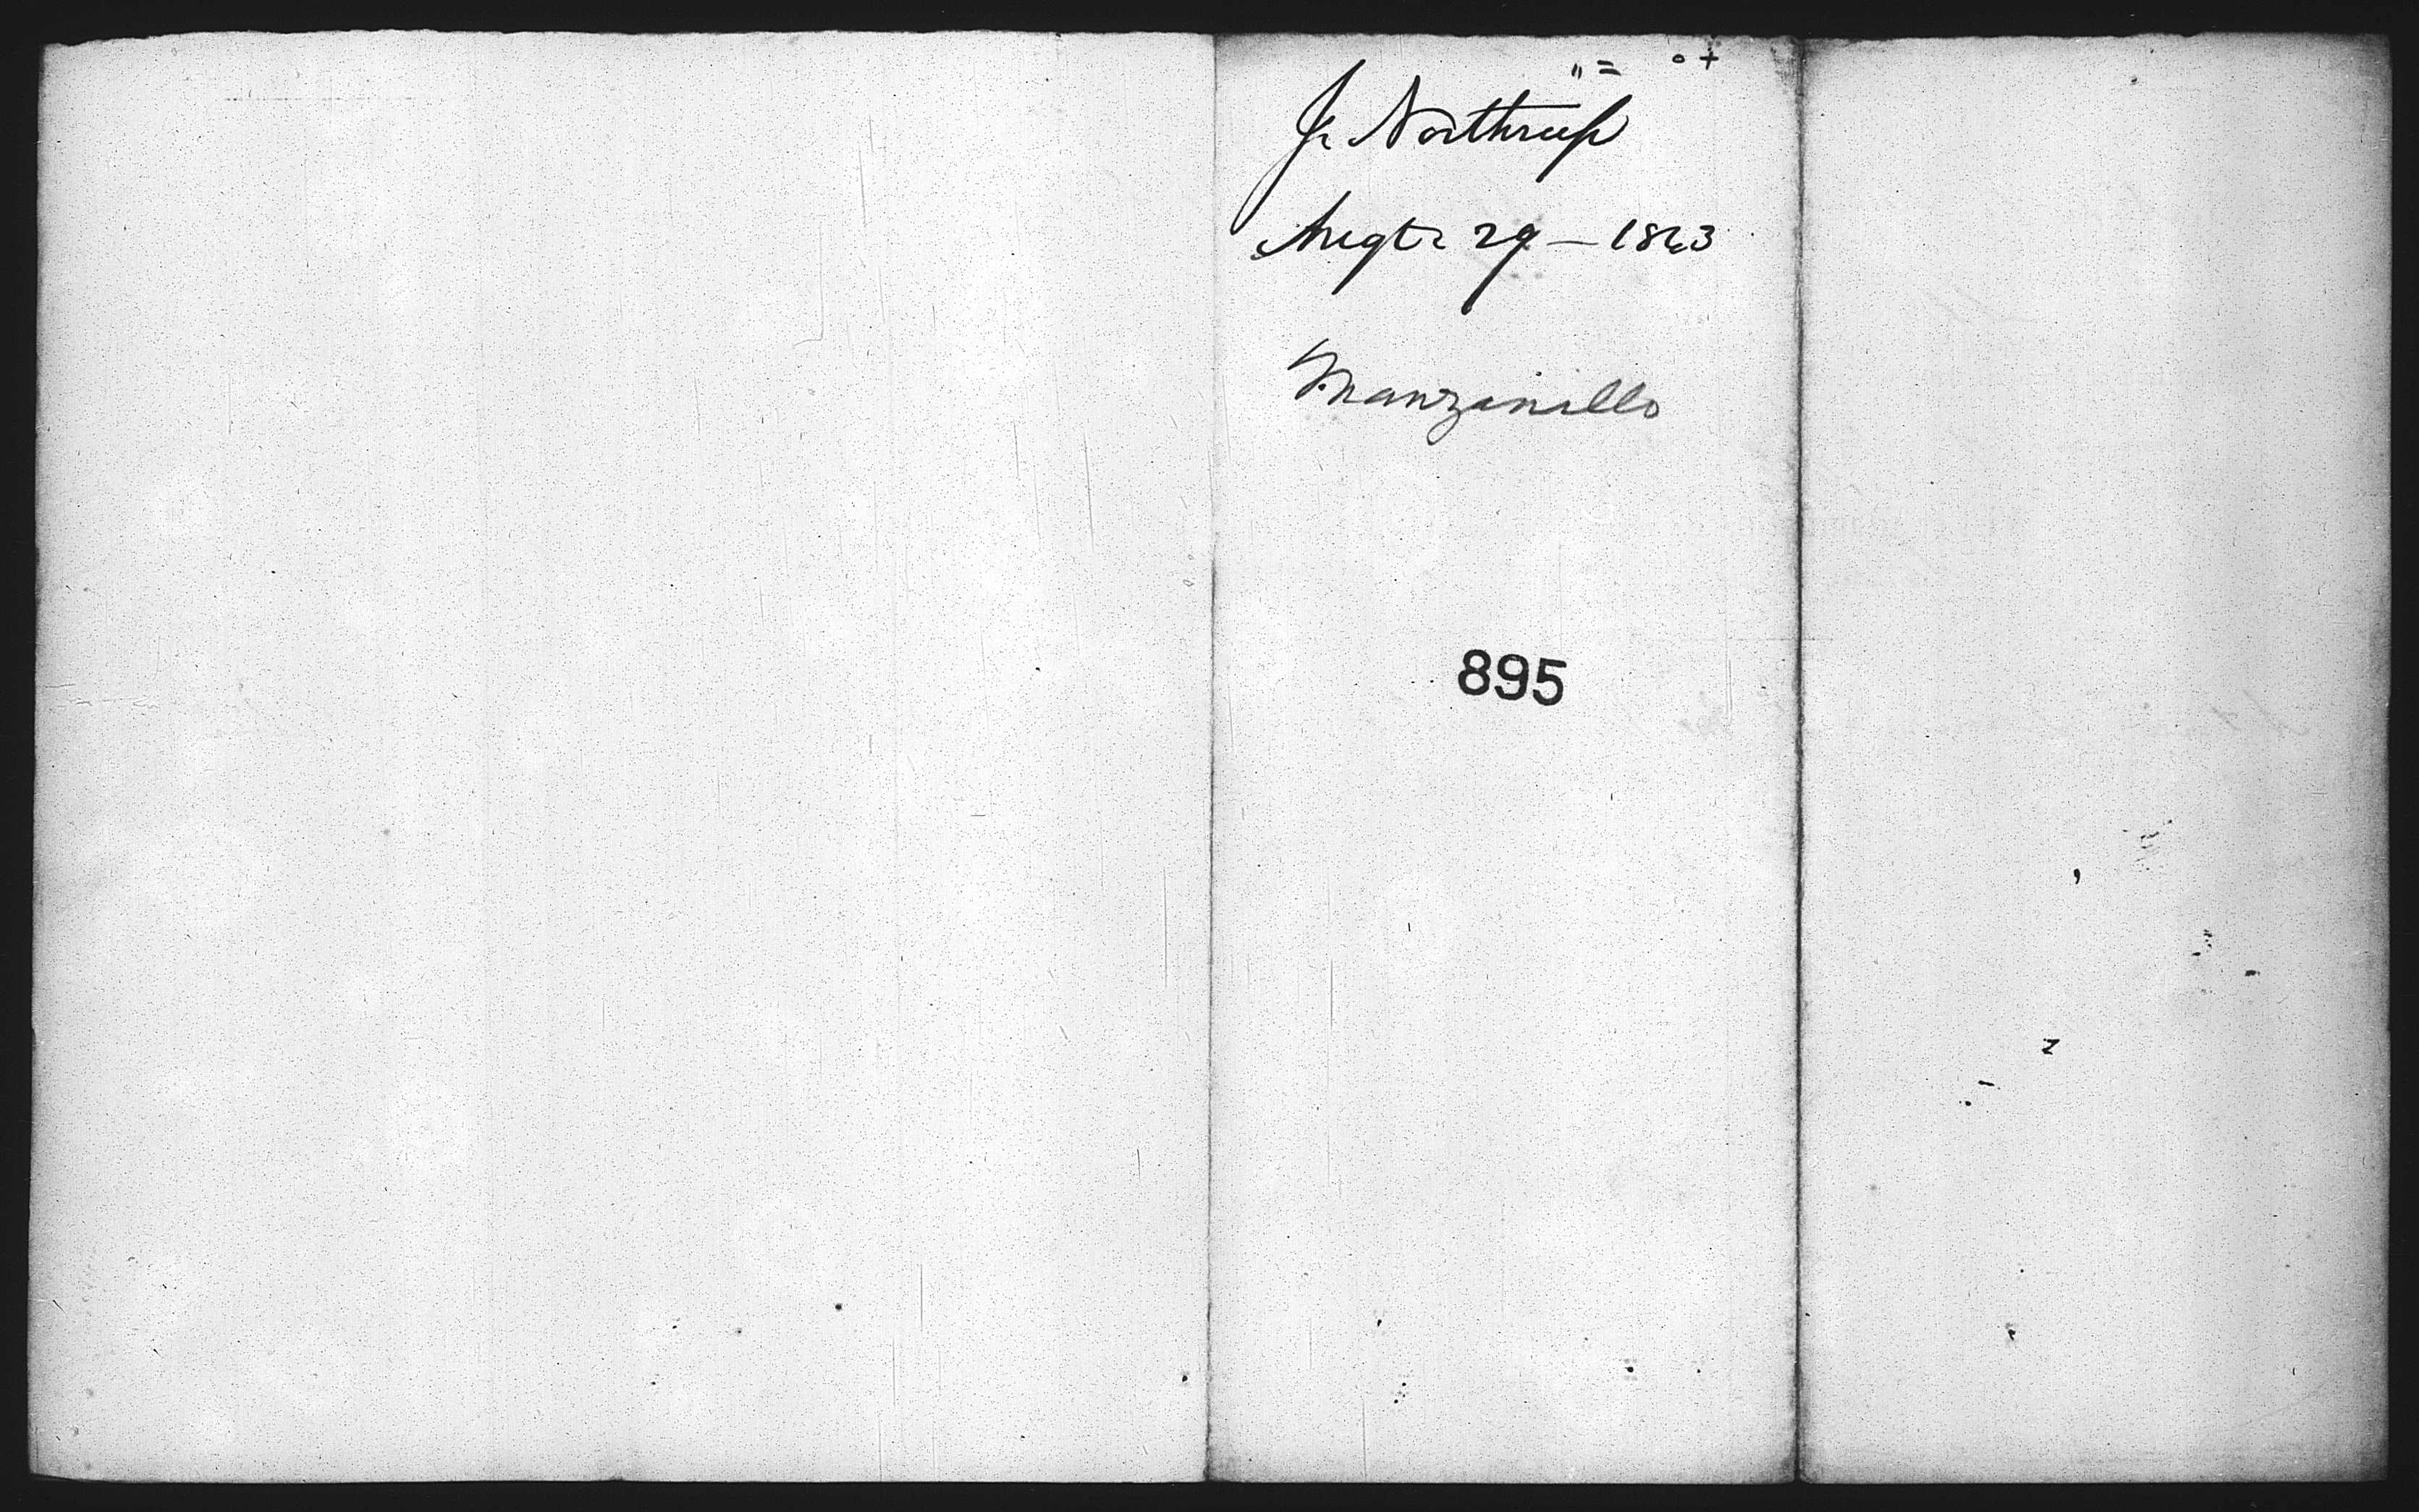 Jr Northrup
Augt 29 — 1863
Manzanillo
895